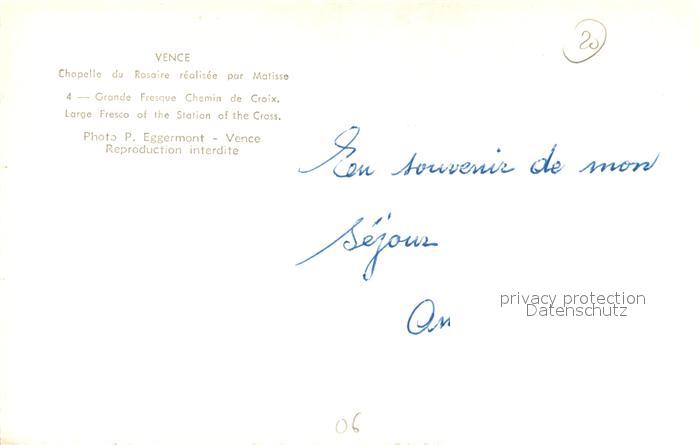 VENCE
Chapelle du Rosaire réalisée par Matisse
4 — Grande Fresque Chemin de Croix.
Large Fresco of the Station of the Cross.
Photo P. Eggermont - Vence
Reproduction interdite
20
En souvenir de mon
séjour
privacy protection
Datenschutz
06